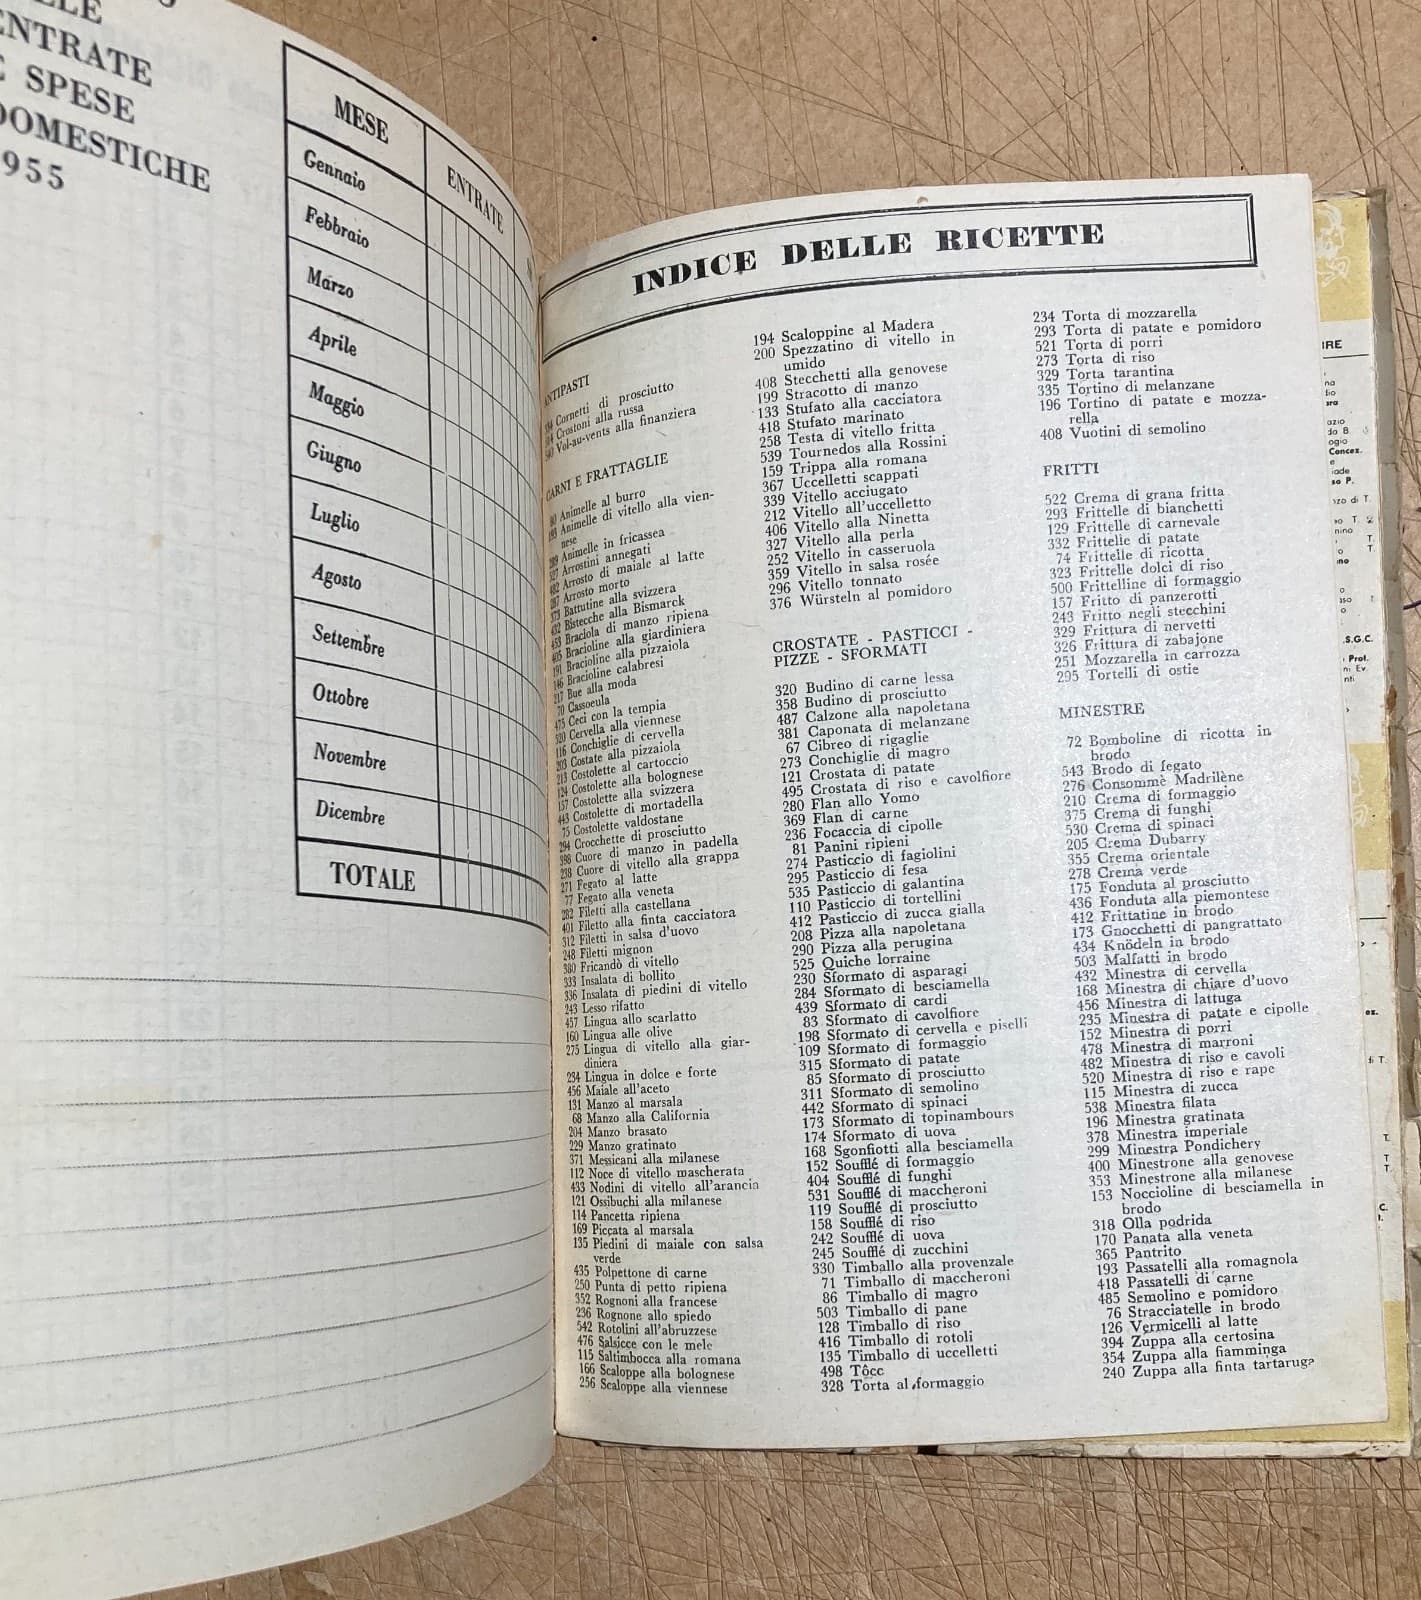 ENTRATE
E SPESE
DOMESTICHE
1955
MESE
ENTRATE
Gennaio
Febbraio
Marzo
Aprile
Maggio
Giugno
Luglio
Agosto
Settembre
Ottobre
Novembre
Dicembre
TOTALE
INDICE DELLE RICETTE
ANTIPASTI
Cornetti di prosciutto
Crostoni alla russa
Vol-au-vents alla finanziera
CARNI E FRATTAGLIE
Animelle al burro
Animelle di vitello alla vien-
nese
Animelle in fricassea
Arrostini annegati
Arrosto di maiale al latte
Arrosto morto
Battutine alla svizzera
Bistecche alla Bismarck
Braciola di manzo ripiena
Bracioline alla giardiniera
Bracioline alla pizzaiola
Bracioline calabresi
217 Bue alla moda
70 Cassoeula
475 Ceci con la tempia
Cervella alla viennese
116 Conchiglie di cervella
203 Costate alla pizzaiola
213 Costolette al cartoccio
124 Costolette alla bolognese
157 Costolette alla svizzera
443 Costolette di mortadella
75 Costolette valdostane
294 Crocchette di prosciutto
398 Cuore di manzo in padella
238 Cuore di vitello alla grappa
271 Fegato al latte
77 Fegato alla veneta
282 Filetti alla castellana
401 Filetto alla finta cacciatora
312 Filetti in salsa d'uovo
248 Filetti mignon
380 Fricandò di vitello
333 Insalata di bollito
336 Insalata di piedini di vitello
243 Lesso rifatto
457 Lingua allo scarlatto
160 Lingua alle olive
275 Lingua di vitello alla giar-
diniera
234 Lingua in dolce e forte
456 Maiale all'aceto
131 Manzo al marsala
68 Manzo alla California
204 Manzo brasato
229 Manzo gratinato
371 Messicani alla milanese
112 Noce di vitello mascherata
433 Nodini di vitello all'arancia
121 Ossibuchi alla milanese
114 Pancetta ripiena
169 Piccata al marsala
135 Piedini di maiale con salsa
verde
435 Polpettone di carne
250 Punta di petto ripiena
352 Rognoni alla francese
236 Rognone allo spiedo
542 Rotolini all'abruzzese
476 Salsicce con le mele
115 Saltimbocca alla romana
166 Scaloppe alla bolognese
256 Scaloppe alla viennese
194 Scaloppine al Madera
200 Spezzatino di vitello in
umido
408 Stecchetti alla genovese
199 Stracotto di manzo
133 Stufato alla cacciatora
418 Stufato marinato
258 Testa di vitello fritta
539 Tournedos alla Rossini
159 Trippa alla romana
367 Uccelletti scappati
339 Vitello acciugato
212 Vitello all'uccelletto
406 Vitello alla Ninetta
327 Vitello alla perla
252 Vitello in casseruola
359 Vitello in salsa rosée
296 Vitello tonnato
376 Würsteln al pomidoro
CROSTATE - PASTICCI -
PIZZE - SFORMATI
320 Budino di carne lessa
358 Budino di prosciutto
487 Calzone alla napoletana
381 Caponata di melanzane
67 Cibreo di rigaglie
273 Conchiglie di magro
121 Crostata di patate
495 Crostata di riso e cavolfiore
280 Flan allo Yomo
369 Flan di carne
236 Focaccia di cipolle
81 Panini ripieni
274 Pasticcio di fagiolini
295 Pasticcio di fesa
535 Pasticcio di galantina
110 Pasticcio di tortellini
412 Pasticcio di zucca gialla
208 Pizza alla napoletana
290 Pizza alla perugina
525 Quiche lorraine
230 Sformato di asparagi
284 Sformato di besciamella
439 Sformato di cardi
83 Sformato di cavolfiore
198 Sformato di cervella e piselli
109 Sformato di formaggio
315 Sformato di patate
85 Sformato di prosciutto
311 Sformato di semolino
442 Sformato di spinaci
173 Sformato di topinambours
174 Sformato di uova
168 Sgonfiotti alla besciamella
152 Soufflé di formaggio
404 Soufflé di funghi
531 Soufflé di maccheroni
119 Soufflé di prosciutto
158 Soufflé di riso
242 Soufflé di uova
245 Soufflé di zucchini
330 Timballo alla provenzale
71 Timballo di maccheroni
86 Timballo di magro
503 Timballo di pane
128 Timballo di riso
416 Timballo di rotoli
135 Timballo di uccelletti
498 Tôcc
328 Torta al formaggio
234 Torta di mozzarella
293 Torta di patate e pomidoro
521 Torta di porri
273 Torta di riso
329 Torta tarantina
335 Tortino di melanzane
196 Tortino di patate e mozza-
rella
408 Vuotini di semolino
FRITTI
522 Crema di grana fritta
293 Frittelle di bianchetti
129 Frittelle di carnevale
332 Frittelle di patate
74 Frittelle di ricotta
323 Frittelle dolci di riso
500 Frittelline di formaggio
157 Fritto di panzerotti
243 Fritto negli stecchini
329 Frittura di nervetti
326 Frittura di zabajone
251 Mozzarella in carrozza
295 Tortelli di ostie
MINESTRE
72 Bomboline di ricotta in
brodo
543 Brodo di fegato
276 Consommè Madrilène
210 Crema di formaggio
375 Crema di funghi
530 Crema di spinaci
205 Crema Dubarry
355 Crema orientale
278 Crema verde
175 Fonduta al prosciutto
436 Fonduta alla piemontese
412 Frittatine in brodo
173 Gnocchetti di pangrattato
434 Knödeln in brodo
503 Malfatti in brodo
432 Minestra di cervella
168 Minestra di chiare d'uovo
456 Minestra di lattuga
235 Minestra di patate e cipolle
152 Minestra di porri
478 Minestra di marroni
482 Minestra di riso e cavoli
520 Minestra di riso e rape
115 Minestra di zucca
538 Minestra filata
196 Minestra gratinata
378 Minestra imperiale
299 Minestra Pondichery
400 Minestrone alla genovese
353 Minestrone alla milanese
153 Noccioline di besciamella in
brodo
318 Olla podrida
170 Panata alla veneta
365 Pantrito
193 Passatelli alla romagnola
418 Passatelli di carne
485 Semolino e pomidoro
76 Stracciatelle in brodo
126 Vermicelli al latte
394 Zuppa alla certosina
354 Zuppa alla fiamminga
240 Zuppa alla finta tartaruga